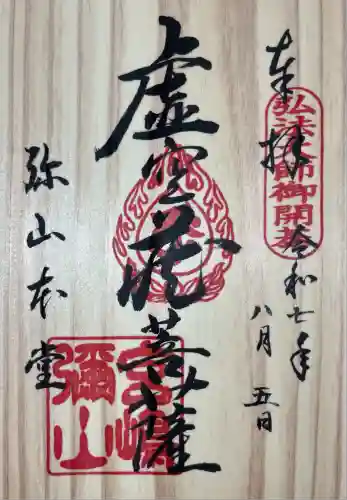 奉拝
弘法大師御開基
令和七年
八月 五日
虚空蔵菩薩
弥山本堂
宮嶋
彌山